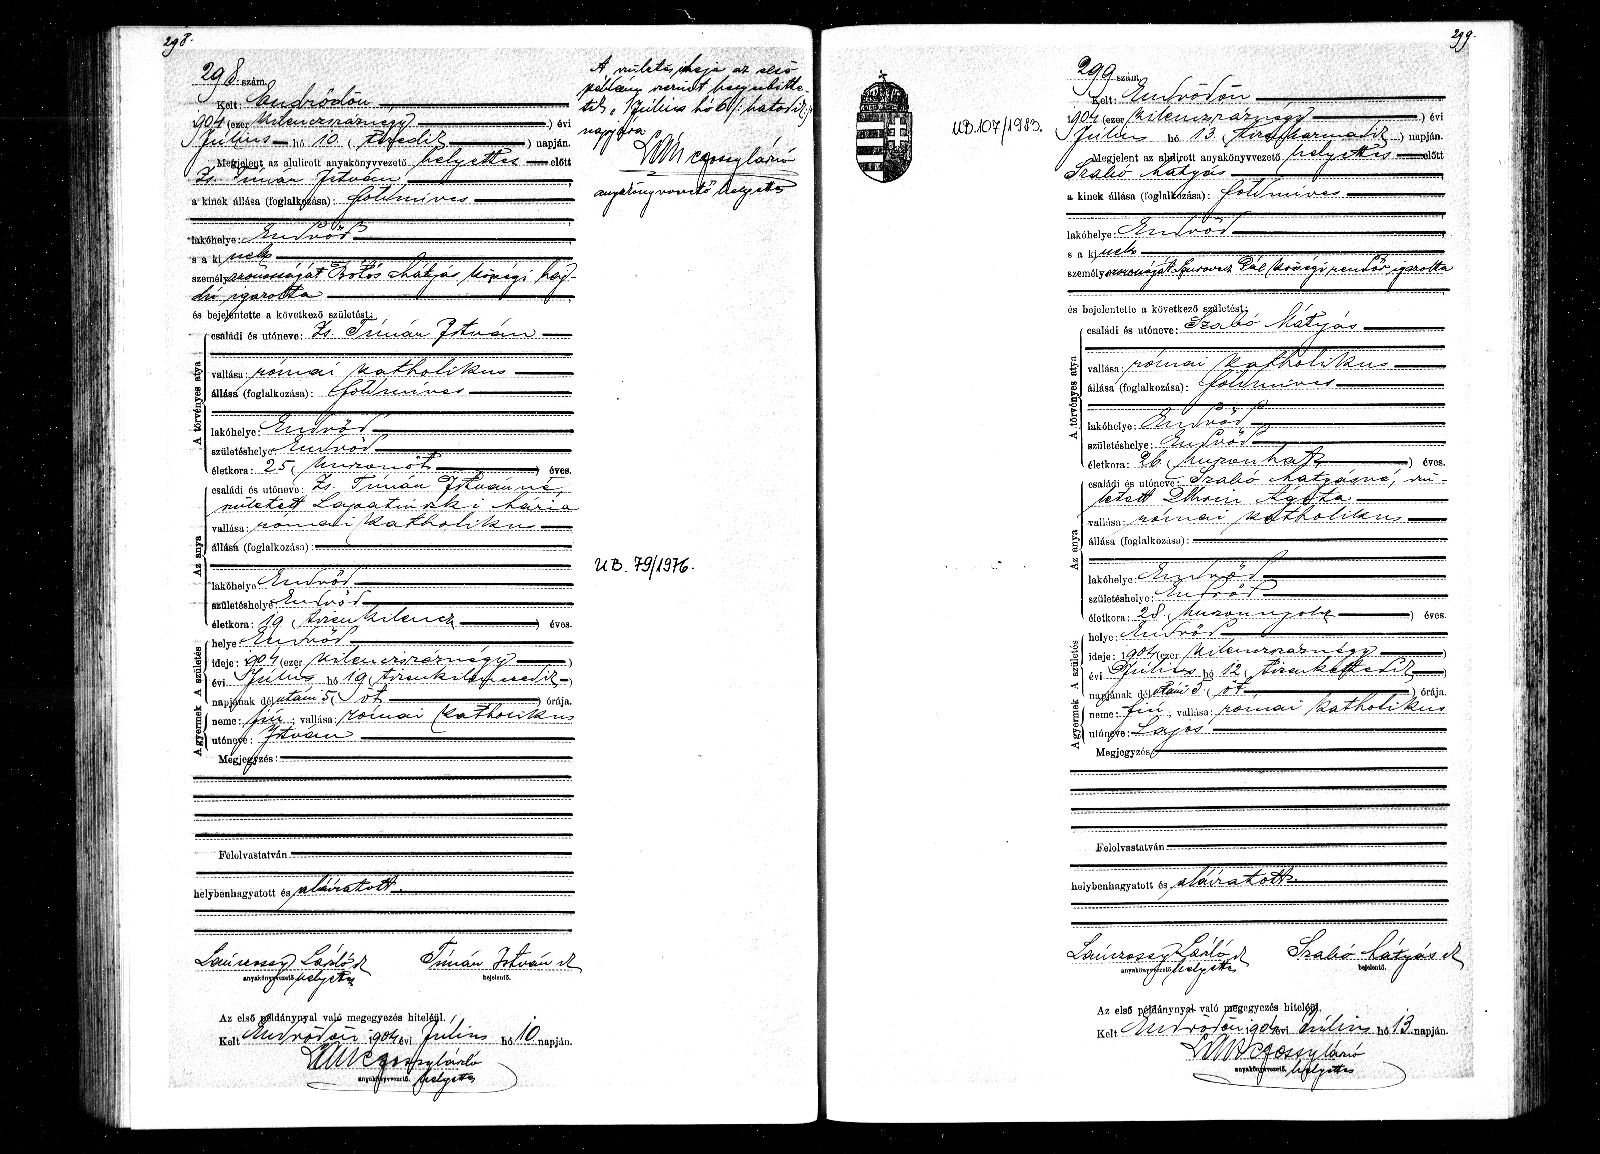 298.
298. szám.
Kelt: Endrődön
904 (ezer kilenczszáznégy) évi
Július hó 10. (tizedik) napján.
Megjelent az alulirott anyakönyvvezető helyettes előtt
Zs. Tímár István
a kinek állása (foglalkozása): földmíves
lakóhelye: Endrőd
s a ki nek
személyazonosságát Mátyás községi haj-
dú igazolta
és bejelentette a következő születést:
A törvényes atya
családi és utóneve: Zs. Tímár István
vallása: római katholikus
állása (foglalkozása): földmíves
lakóhelye: Endrőd
születéshelye: Endrőd
életkora: 25 (huszonöt) éves.
Az anya
családi és utóneve: Zs. Tímár Istvánné,
született Lapatinszki Mária
vallása: római katholikus
állása (foglalkozása):
lakóhelye: Endrőd
születéshelye: Endrőd
életkora: 19 (tizenkilencz) éves.
A gyermek A születés
helye: Endrőd
ideje: 904 (ezer kilenczszáznégy)
évi Július hó 19 (tizenkilenczedik)
napjának dél utáni 5 (öt) órája.
neme: fiú; vallása: római katholikus
utóneve: István
Megjegyzés:
Felolvastatván
helybenhagyatott és aláiratott.
Lánczossy László
anyakönyvvezető. helyettes
Tímár István
bejelentő.
Az első példánynyal való megegyezés hiteléül.
Kelt Endrődön 1904 évi Július hó 10 napján.
Lánczossy László
anyakönyvvezető. helyettes
A születés ideje az első
példány szerint helyesbítte-
tik „Július hó 6 (hatodik)"
napjára
Lánczossy László
anyakönyvvezető helyettes
UB. 79/1976.
299.
UB. 107/1983.
299 szám.
Kelt: Endrődön
1904 (ezer kilenczszáznégy) évi
Július hó 13. (tizenharmadik) napján.
Megjelent az alulirott anyakönyvvezető helyettes előtt
Szabó Mátyás
a kinek állása (foglalkozása): földmíves
lakóhelye: Endrőd
s a ki nek
személyazonosságát Pál községi rendőr igazolta
és bejelentette a következő születést:
A törvényes atya
családi és utóneve: Szabó Mátyás
vallása: római katholikus
állása (foglalkozása): földmíves
lakóhelye: Endrőd
születéshelye: Endrőd
életkora: 26 (huszonhat) éves.
Az anya
családi és utóneve: Szabó Mátyásné, szü-
letett Ágota
vallása: római katholikus
állása (foglalkozása):
lakóhelye: Endrőd
születéshelye: Endrőd
életkora: 28 (huszonnyolc) éves.
A gyermek A születés
helye: Endrőd
ideje: 1904 (ezer kilenczszáznégy)
évi Július hó 12 (tizenkettedik)
napjának dél utáni 5 (öt) órája.
neme: fiú; vallása: római katholikus
utóneve: Lajos
Megjegyzés:
Felolvastatván
helybenhagyatott és aláiratott.
Lánczossy László
anyakönyvvezető. helyettes
Szabó Mátyás
bejelentő.
Az első példánynyal való megegyezés hiteléül.
Kelt Endrődön 1904 évi Július hó 13 napján.
Lánczossy László
anyakönyvvezető. helyettes